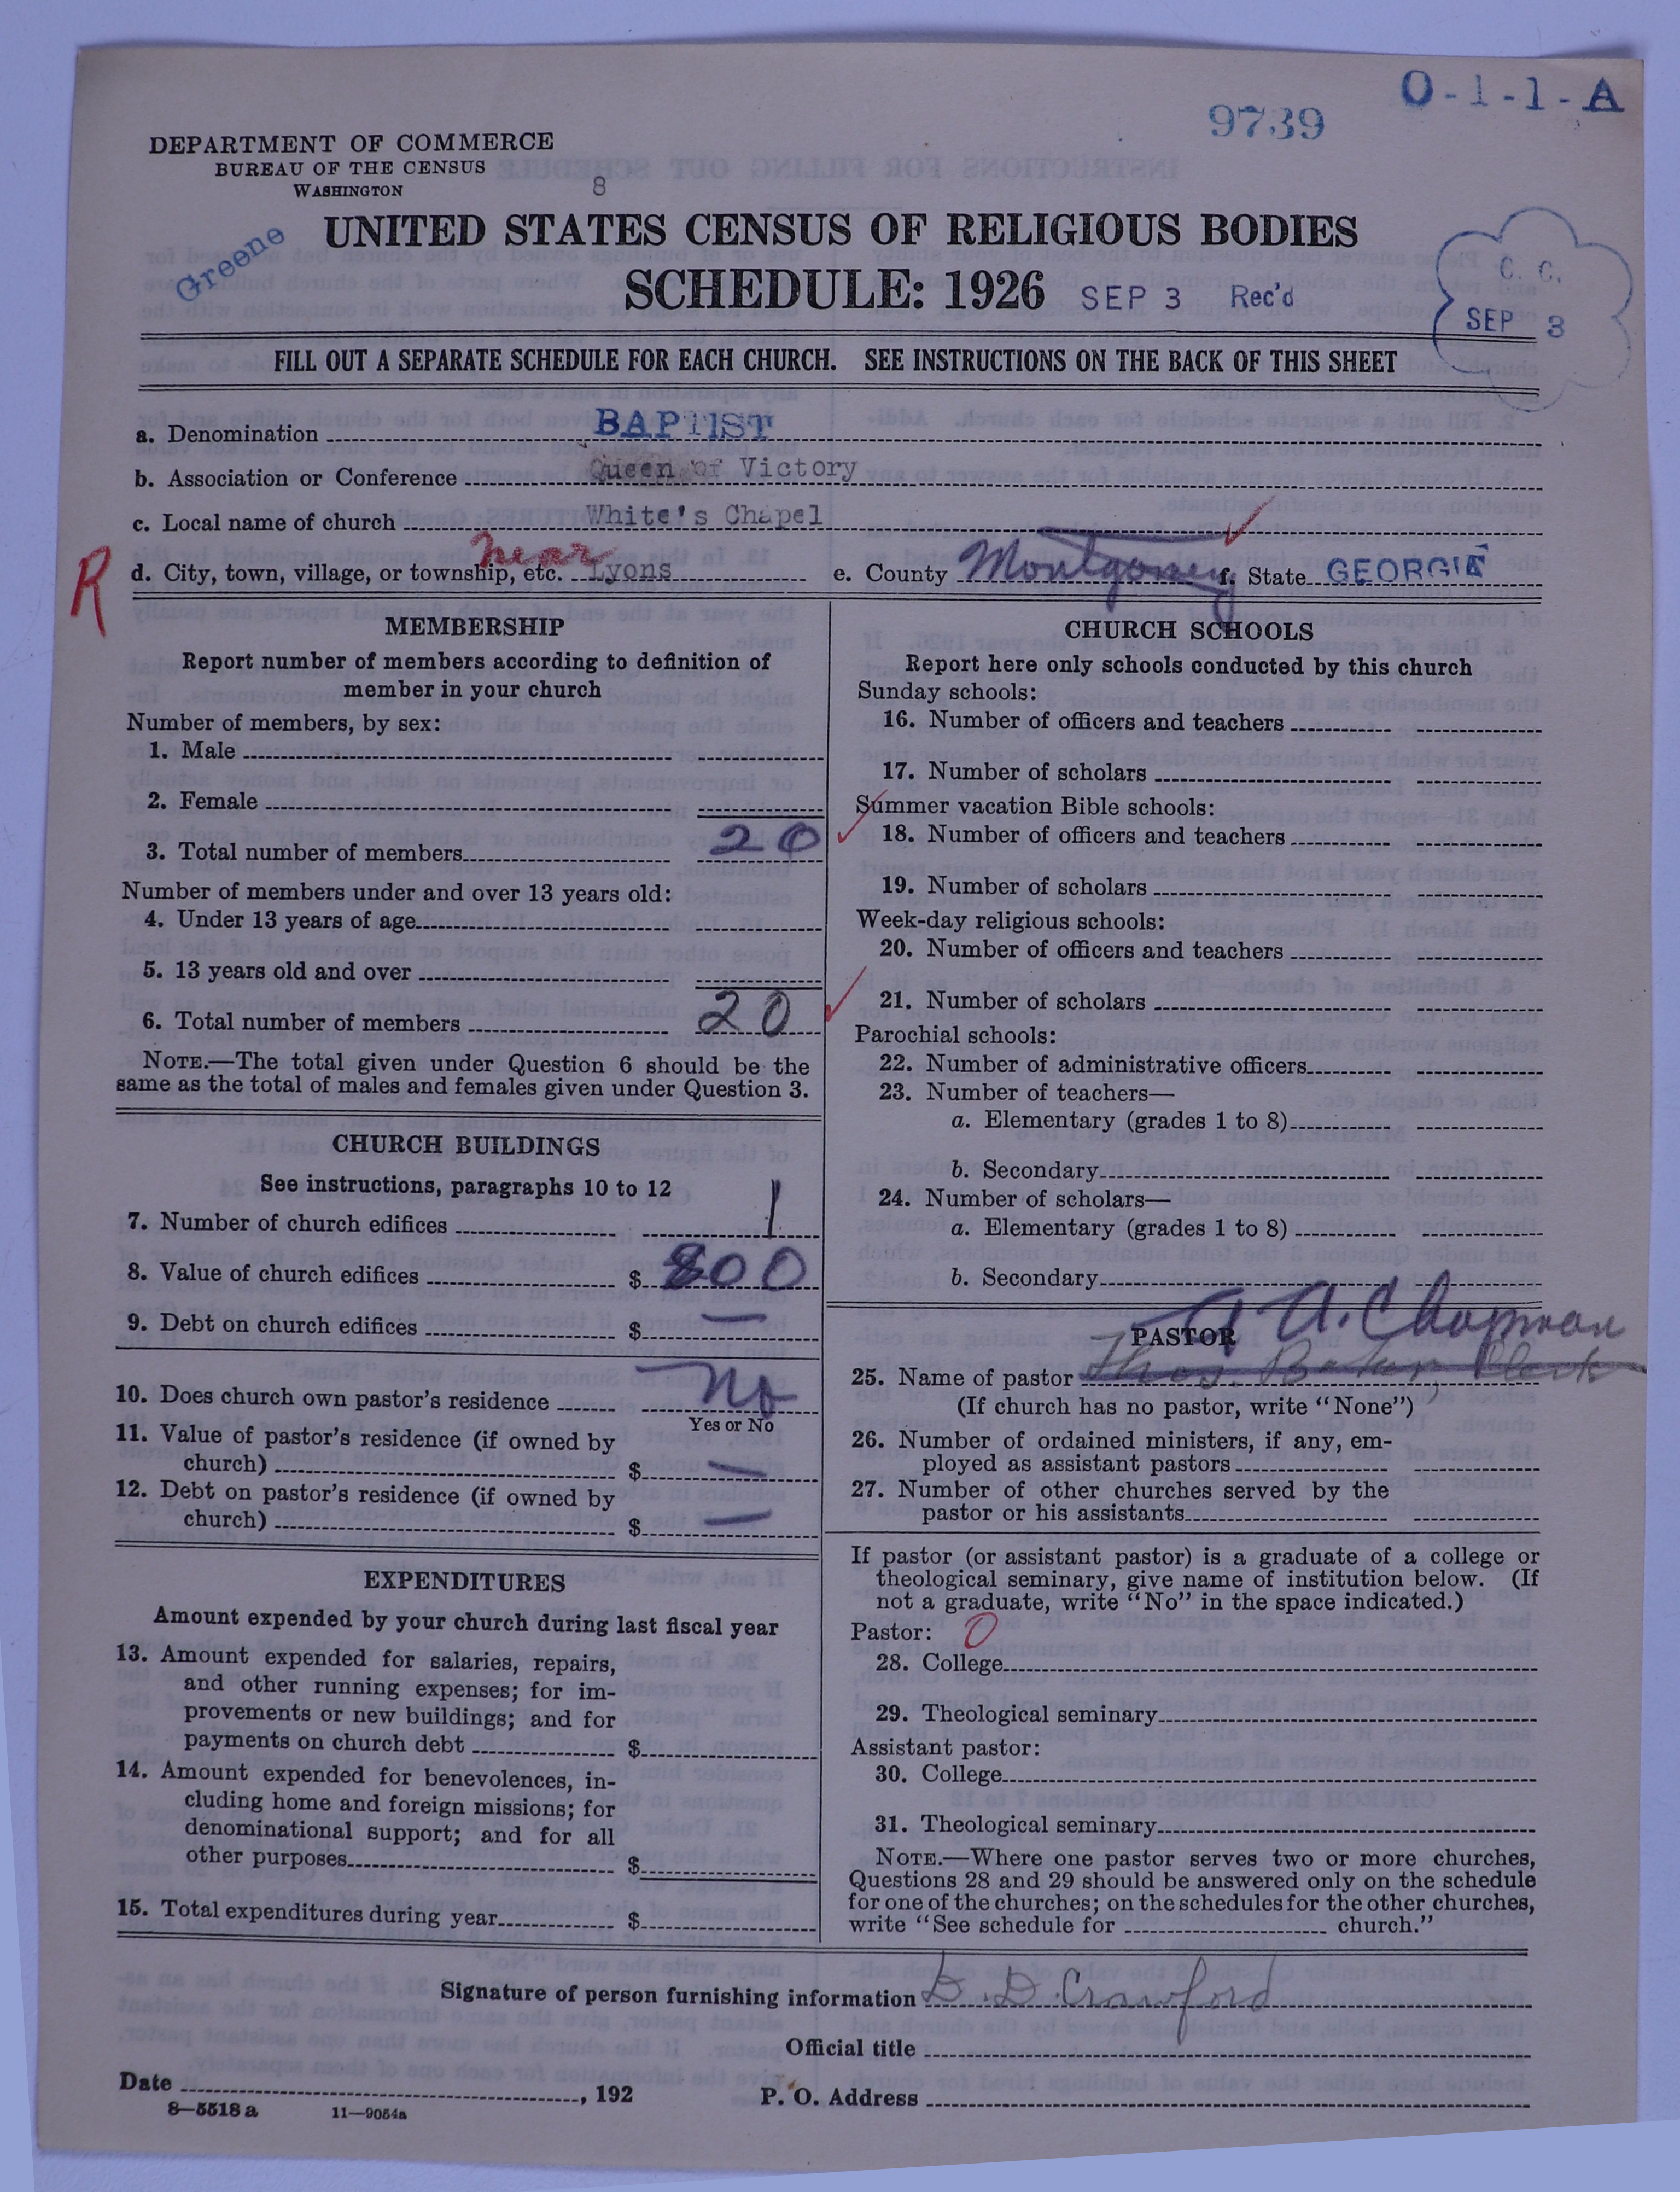 O-1-1-A
9739
DEPARTMENT OF COMMERCE
BUREAU OF THE CENSUS
WASHINGTON
8
Greene
UNITED STATES CENSUS OF RELIGIOUS BODIES
SCHEDULE: 1926 SEP 3 Rec'd
C. C.
SEP 3
FILL OUT A SEPARATE SCHEDULE FOR EACH CHURCH. SEE INSTRUCTIONS ON THE BACK OF THIS SHEET
a. Denomination BAPTIST
b. Association or Conference Queen of Victory
c. Local name of church White's Chapel
R
near
d. City, town, village, or township, etc. Lyons e. County Montgomery f. State GEORGIA
MEMBERSHIP
Report number of members according to definition of
member in your church
Number of members, by sex:
1. Male
2. Female
3. Total number of members 20
Number of members under and over 13 years old:
4. Under 13 years of age
5. 13 years old and over
6. Total number of members 20
NOTE.—The total given under Question 6 should be the
same as the total of males and females given under Question 3.
CHURCH BUILDINGS
See instructions, paragraphs 10 to 12
7. Number of church edifices 1
8. Value of church edifices $ 800
9. Debt on church edifices $ —
10. Does church own pastor's residence No
Yes or No
11. Value of pastor's residence (if owned by
church) $ —
12. Debt on pastor's residence (if owned by
church) $ —
EXPENDITURES
Amount expended by your church during last fiscal year
13. Amount expended for salaries, repairs,
and other running expenses; for im-
provements or new buildings; and for
payments on church debt $
14. Amount expended for benevolences, in-
cluding home and foreign missions; for
denominational support; and for all
other purposes $
15. Total expenditures during year $
CHURCH SCHOOLS
Report here only schools conducted by this church
Sunday schools:
16. Number of officers and teachers
17. Number of scholars
Summer vacation Bible schools:
18. Number of officers and teachers
19. Number of scholars
Week-day religious schools:
20. Number of officers and teachers
21. Number of scholars
Parochial schools:
22. Number of administrative officers
23. Number of teachers—
a. Elementary (grades 1 to 8)
b. Secondary
24. Number of scholars—
a. Elementary (grades 1 to 8)
b. Secondary
A. Chapman
PASTOR
25. Name of pastor Thos. Baker, Clerk
(If church has no pastor, write "None")
26. Number of ordained ministers, if any, em-
ployed as assistant pastors
27. Number of other churches served by the
pastor or his assistants
If pastor (or assistant pastor) is a graduate of a college or
theological seminary, give name of institution below. (If
not a graduate, write "No" in the space indicated.)
Pastor: 0
28. College
29. Theological seminary
Assistant pastor:
30. College
31. Theological seminary
NOTE.—Where one pastor serves two or more churches,
Questions 28 and 29 should be answered only on the schedule
for one of the churches; on the schedules for the other churches,
write "See schedule for church."
Signature of person furnishing information D. D. Crawford
Official title
Date , 192 P. O. Address
8—5518 a 11—9054a